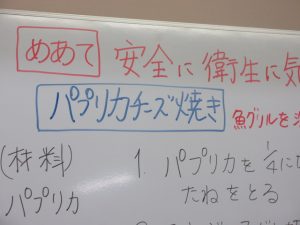 めあて 安全に衛生に気
パプリカチーズ焼き
魚グリルを
(材料)
パプリカ
1. パプリカを 1/4に
たねをとる